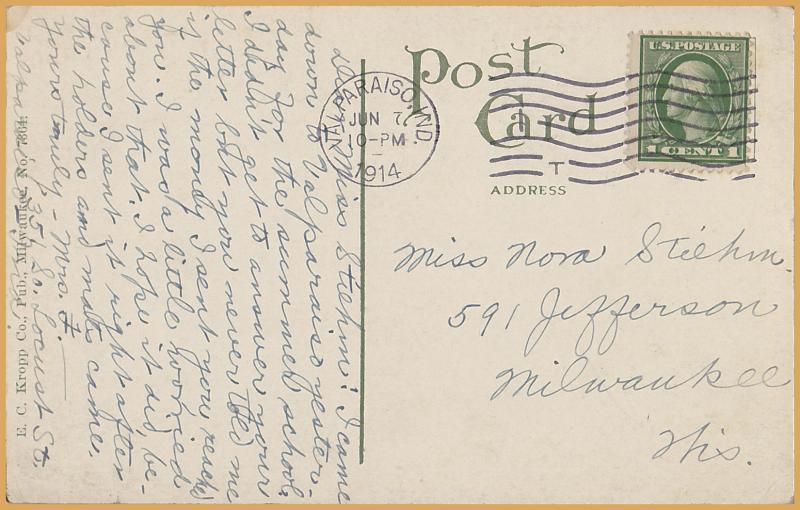 Post
Card
ADDRESS
VALPARAISO, IND.
JUN 7
10-PM
1914
T
U.S. POSTAGE
1 CENT 1
Miss Nora Stiehm,
591 Jefferson
Milwaukee
Wis.
Dear Miss Stiehm: I came
down to Valparaiso yester-
day for the summer school.
I didn't get to answer your
letter but you never told me
if the money I sent you reached
you. I was a little worried
about that. I hope it did, be-
cause I sent it right after
the holders and mats came.
Yours truly - Mrs. F.
 So. Locust St.
Valparaiso, Ind.
E. C. Kropp Co., Pub., Milwaukee, No. 7804.